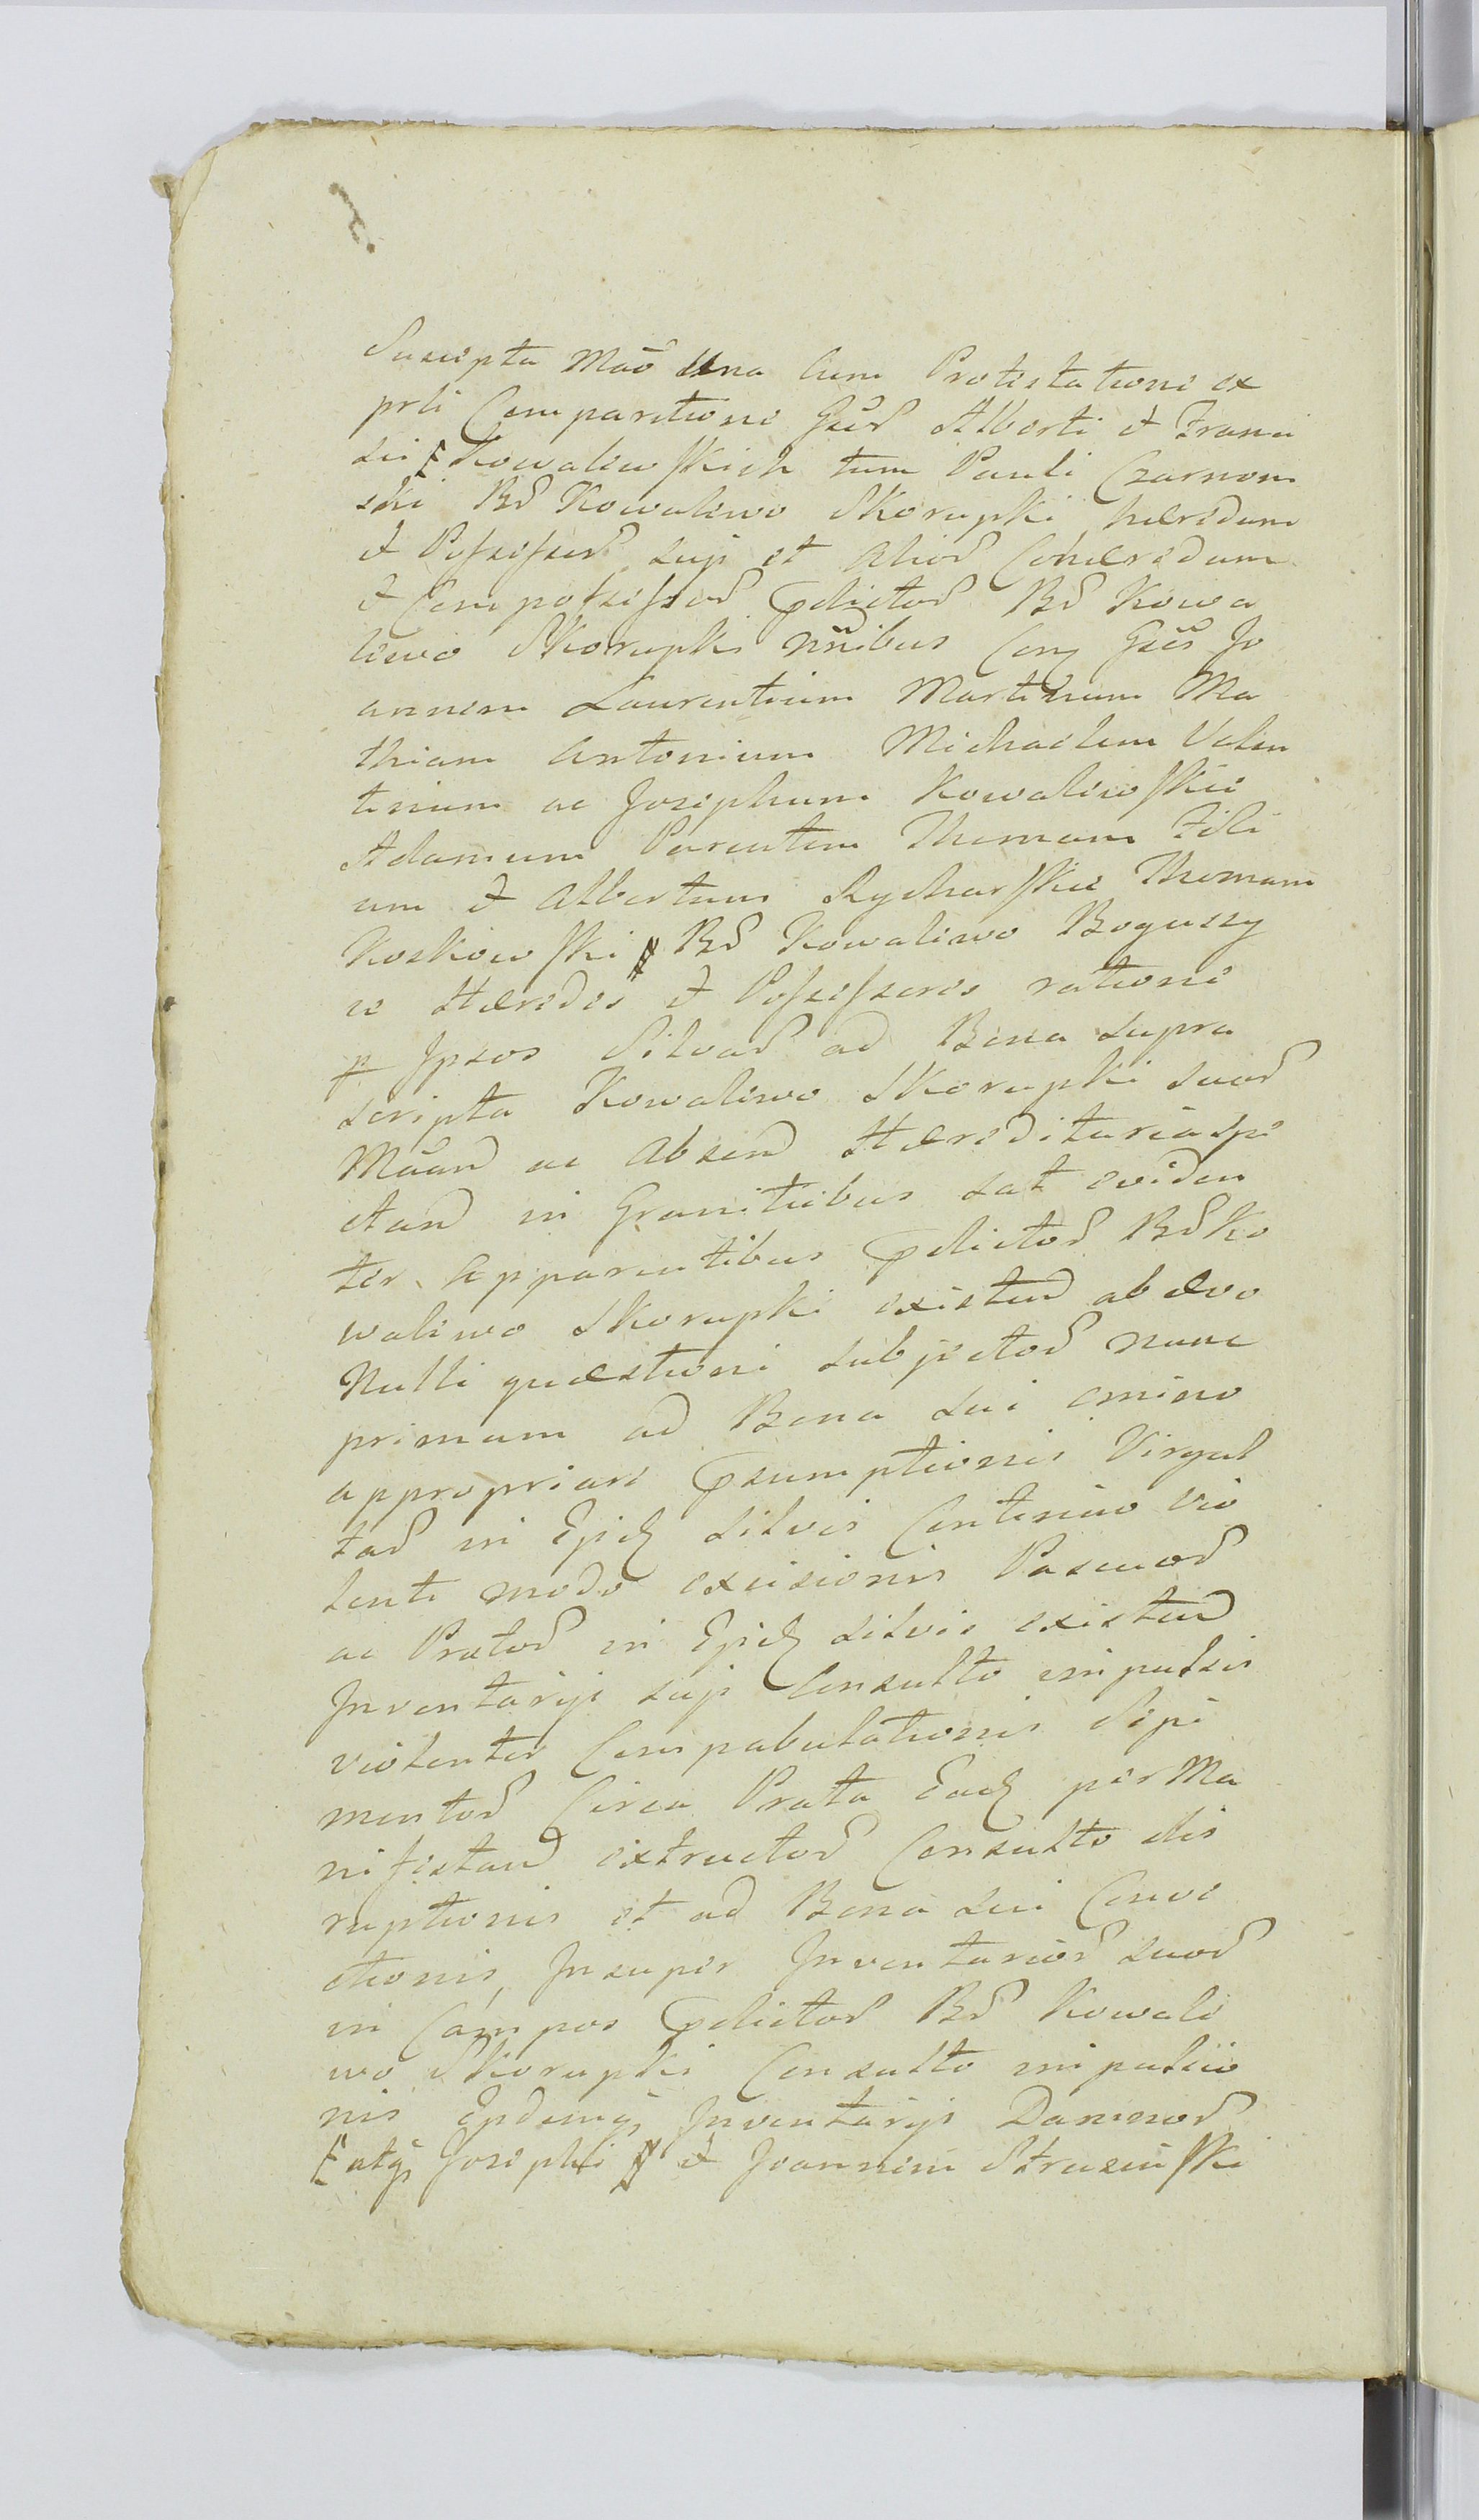 Suscepta Mão Una Cum Protestatione ex
prti Comparitione Gsōr Alberti et Franci
sci Kowalewskich tum Pauli Czarnom
ski Br Kowalewo Skorupki hæredum
et Possessor suj et Alior Cohæredum
et Compossessor prdictor Br Kowa
lewo Skorupki nñibus Conq Gsōs Jo
annem Laurentium Martinum Ma
thiam Antonium Michaelem Valen
tinum ac Josephum Kowalewskie
Adamum Parentem Thomam Fili
um et Albertum Rycharskie Thomam
Koskowski Br Kowalewo Boguszy
ce Hæredes et Possessores ratione
p Ipsos Silvar ad Bona supra
scripta Kowalewo Skorupki suor
Mãand ac Absend Hæreditarie spe
ctand in Granitiebus sat eviden
ter Apparentibus prdictor Br Ko
walewo Skorupki existend ab ævo
Nulli quæstioni subjector nunc
primum ad Bona sui omino
appropriare præsumptionis Virgul
tar in Epiq silvis Contineo vio
lento modo excisionis Pascuor
ac Prator in Epiq silvis existend
Inventarijs suji Consulto impulsis
violenter Compabulationis Sepi
mentor Circa Prata Eadq per Ma
nifestand extructor Consulto dis
ruptionis et ad Bona sui Conve
ctionis, Insuper Inventarior suor
in Campos prdictor Br Kowale
wo Skorupki Consulto impulsio
nis Epdemq Inventarijs Damnor
atq Josephi et Joannem Strusinski